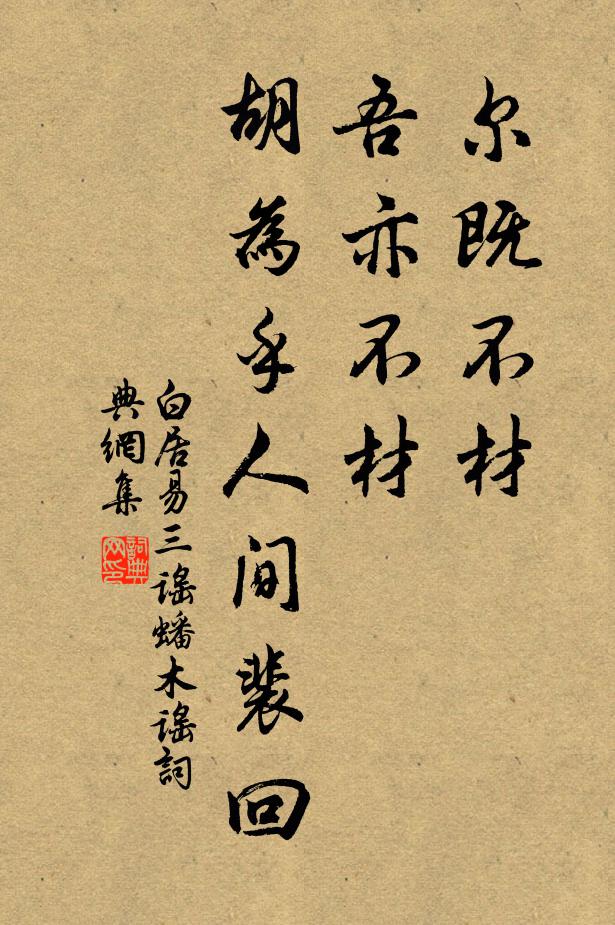 尔既不材
吾亦不材
胡為乎人间裴回
白居易三谣蟠木谣詞
典網集
詞典
网印